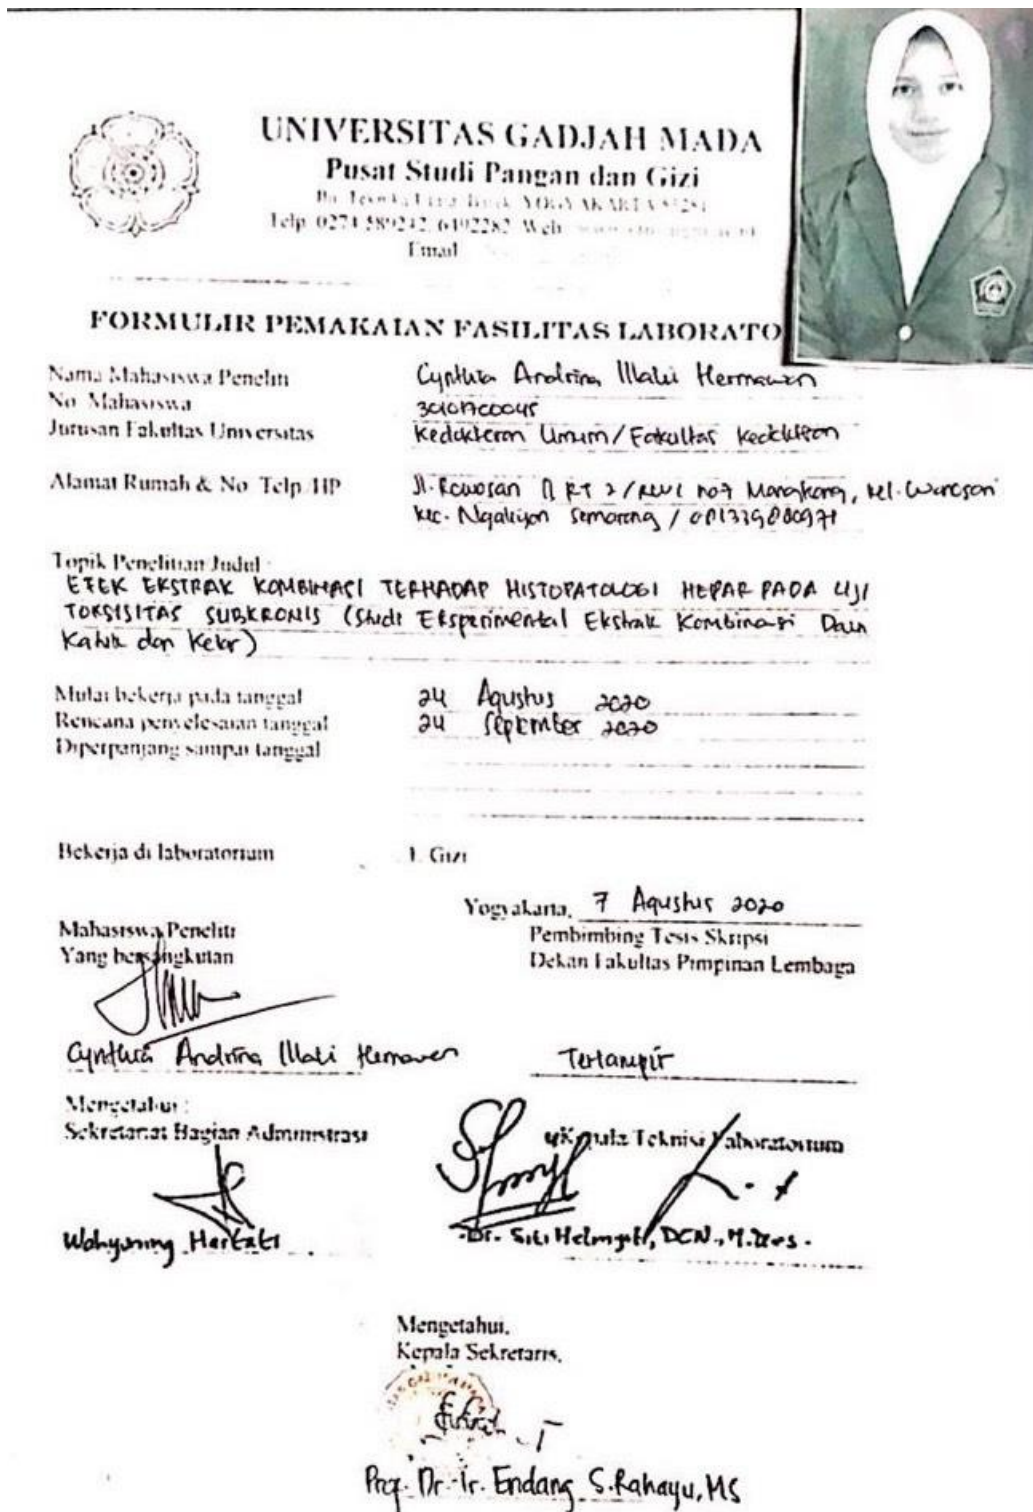 UNIVERSITAS GADJAH MADA
Pusat Studi Pangan dan Gizi
YOGYAKARTA
Telp. 0274 589242, 6492282 Web
Email
FORMULIR PEMAKAIAN FASILITAS LABORATO
Nama Mahasiswa Peneliti Cynthia Andrina Illahi Hermawan
No. Mahasiswa 30101700045
Jurusan Fakultas Universitas Kedokteran Umum / Fakultas Kedokteran
Alamat Rumah & No. Telp/HP Jl. RT 2 / no 7 Mangkang, kel. Wonosari
kec. Ngaliyan Semarang /
Topik Penelitian Judul :
EFEK EKSTRAK KOMBINASI TERHADAP HISTOPATOLOGI HEPAR PADA UJI
TOKSISITAS SUBKRONIS (Studi Eksperimental Ekstrak Kombinasi Daun
Katuk dan Kelor)
Mulai bekerja pada tanggal 24 Agustus 2020
Rencana penyelesaian tanggal 24 September 2020
Diperpanjang sampai tanggal
Bekerja di laboratorium 1. Gizi
Yogyakarta, 7 Agustus 2020
Mahasiswa Peneliti Pembimbing Tesis Skripsi
Yang bersangkutan Dekan Fakultas Pimpinan Lembaga
Cynthia Andrina Illahi Hermawan Terlampir
Mengetahui :
Sekretariat Bagian Administrasi Kepala Teknisi Laboratorium
Wahyuning Hartati Dr. Siti Helmyati, DCN., M.Kes.
Mengetahui,
Kepala Sekretaris,
Prof. Dr. Ir. Endang S. Rahayu, MS